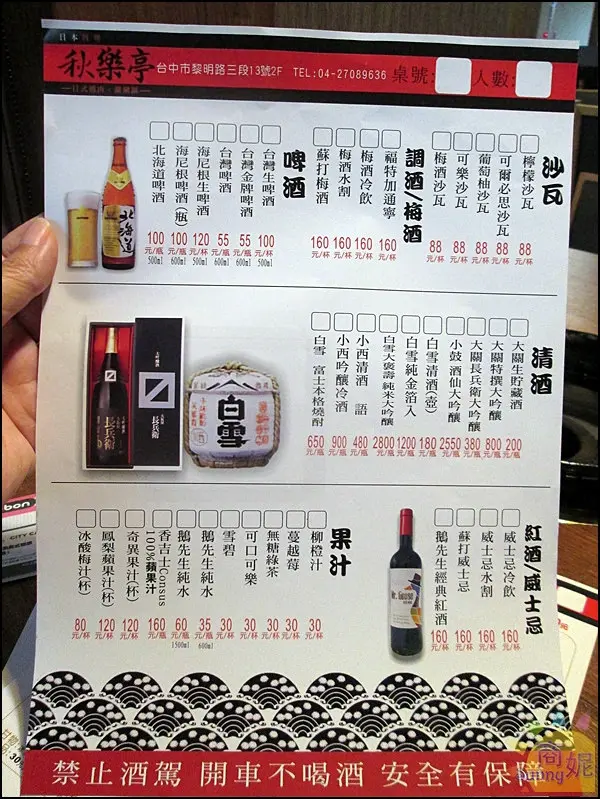 日本料理
秋樂亭
台中市黎明路三段13號2F TEL:04-27089636 桌號: 人數:
沙瓦
檸檬沙瓦 88元/杯
可爾必思沙瓦 88元/杯
葡萄柚沙瓦 88元/杯
可樂沙瓦 88元/杯
梅酒沙瓦 88元/杯
調酒/梅酒
福特加通寧 160元/杯
梅酒冷飲 160元/杯
梅酒水割 160元/杯
蘇打梅酒 160元/杯
啤酒
台灣生啤酒 100元/瓶 500ml
台灣金牌啤酒 55元/瓶 600ml
台灣啤酒 55元/瓶 600ml
海尼根生啤酒 120元/杯 500ml
海尼根啤酒(瓶) 100元/瓶 600ml
北海道啤酒 100元/瓶 500ml
北海道
清酒
大關生貯藏酒 200元/瓶
大關特撰大吟釀 800元/瓶
大關長兵衛大吟釀 380元/瓶
小鼓酒仙大吟釀 2550元/瓶
白雪清酒(壺) 180元/瓶
白雪純金箔入 1200元/瓶
白雪大褒壽純米大吟釀 2800元/瓶
小西清酒 語 480元/瓶
小西吟釀冷酒 900元/瓶
白雪 富士本格燒酎 650元/瓶
長兵衛
白雪
紅酒/威士忌
威士忌冷飲 160元/杯
威士忌水割 160元/杯
蘇打威士忌 160元/杯
鵝先生經典紅酒 160元/杯
果汁
柳橙汁 30元/杯
蔓越莓 30元/杯
無糖綠茶 30元/杯
可口可樂 30元/杯
雪碧 30元/杯
鵝先生純水 35元/瓶 600ml
鵝先生純水 60元/瓶 1500ml
香吉士Consus 100%蘋果汁 160元/瓶
奇異果汁(杯) 120元/杯
鳳梨蘋果汁(杯) 120元/杯
冰酸梅汁(杯) 80元/杯
禁止酒駕 開車不喝酒 安全有保障
商妮